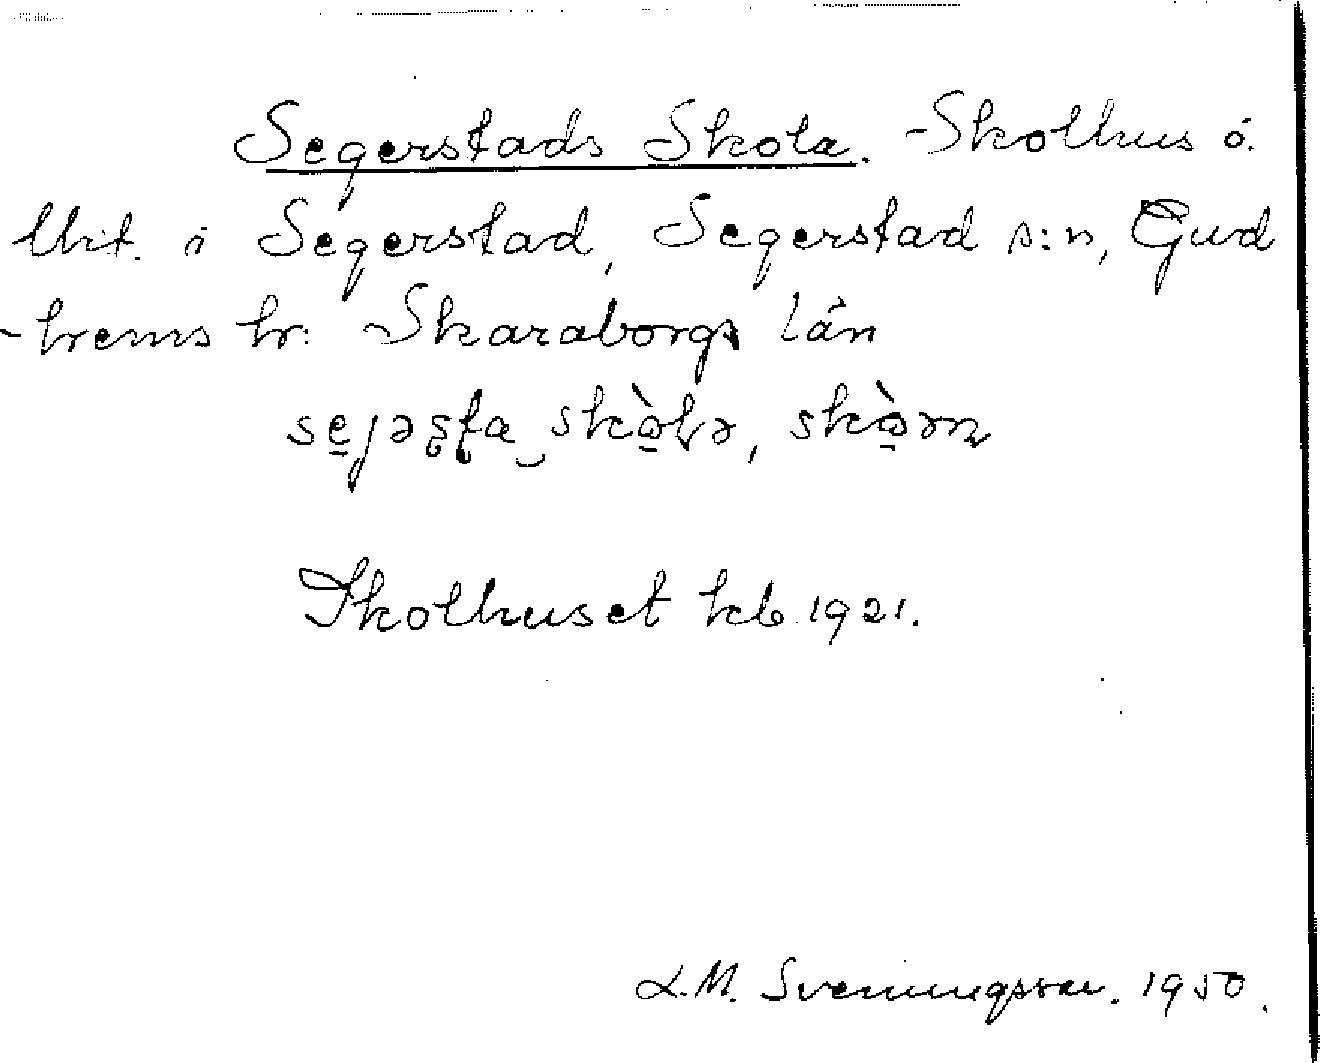 Segerstads Skola. - Skolhus ö.
Utit. i Segerstad, Segerstad s:n, Gud
-hems hr. Skaraborgs län
Skolhuset kb 1921.
L.M. Svenningsson. 1950.